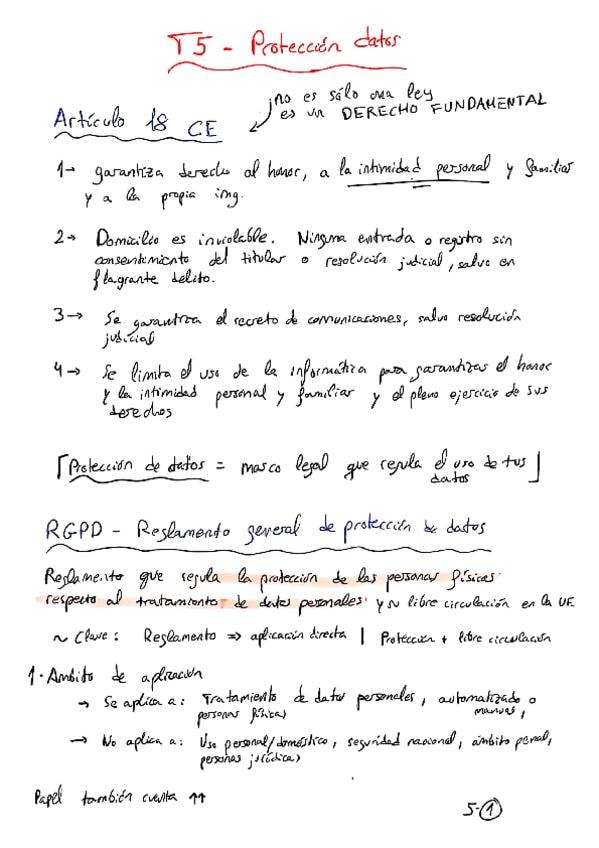 T5 - Protección datos
no es sólo una ley
es un DERECHO FUNDAMENTAL
Artículo 18 CE
1→ garantiza derecho al honor, a la intimidad personal y familiar
y a la propia img.
2→ Domicilio es inviolable. Ninguna entrada o registro sin
consentimiento del titular o resolución judicial, salvo en
flagrante delito.
3→ Se garantiza el secreto de comunicaciones, salvo resolución
judicial
4→ Se limita el uso de la informática para garantizar el honor
y la intimidad personal y familiar y el pleno ejercicio de sus
derechos
[Protección de datos = marco legal que regula el uso de tus
datos]
RGPD - Reglamento general de protección de datos
Reglamento que regula la protección de las personas físicas
respecto al tratamiento de datos personales y ~ libre circulación en la UE
~ Clave: Reglamento => aplicación directa | Protección + libre circulación
1. Ámbito de aplicación
→ Se aplica a: Tratamiento de datos personales, automatizado o
personas físicas manual,
→ No aplica a: Uso personal/doméstico, seguridad nacional, ámbito penal,
personas jurídicas
Papel también cuenta ↑↑
5-1